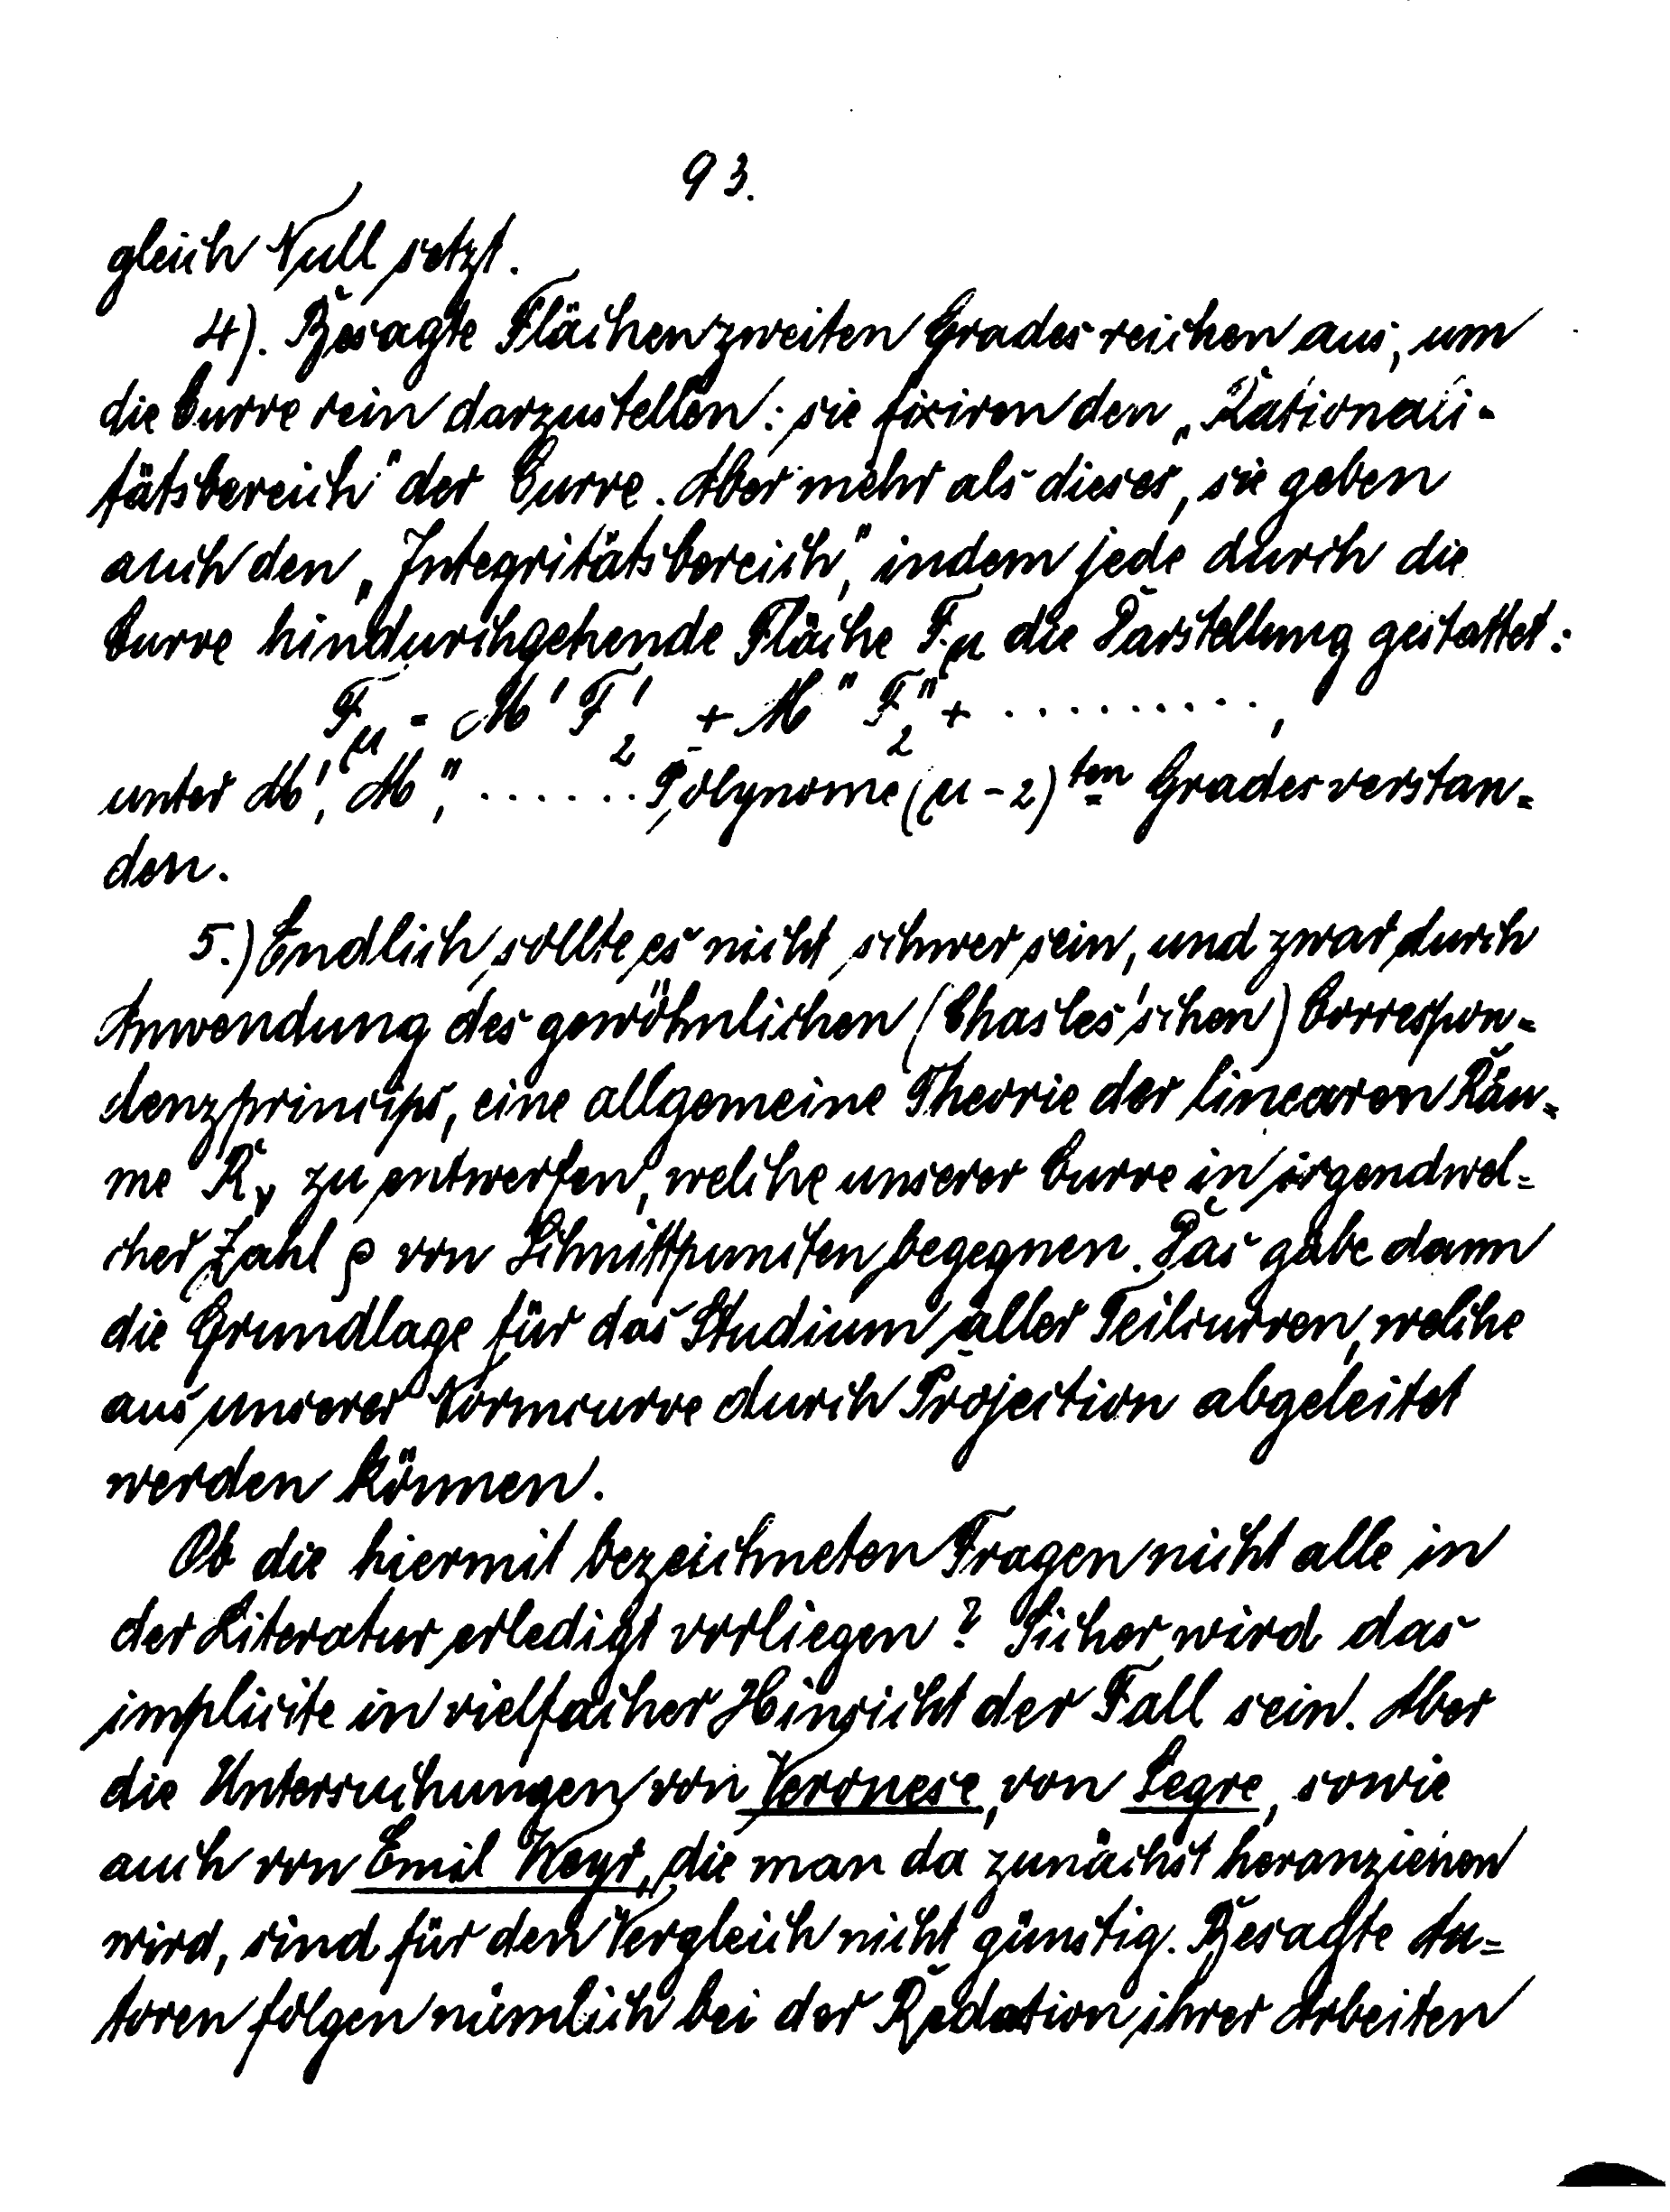 93.
gleich Null setzt.
4). Besagte Flächen zweiten Grades reichen aus, um
die Curve rein darzustellen: sie fixiren den „Rationali-
tätsbereich" der Curve. Aber mehr als dieses, sie geben
auch den „Integritätsbereich", indem jede durch die
Curve hindurchgehende Fläche F_μ die Darstellung gestattet:
F_μ = M' F_2' + M'' F_2'' + ..........,
unter M', M'', ...... Polynome (μ-2)ten Grades verstan=
den.
5.) Endlich sollte es nicht schwer sein, und zwar durch
Anwendung des gewöhnlichen (Chasles'schen) Correspon=
denzprincips, eine allgemeine Theorie der linearen Räu=
me R_ν zu entwerfen, welche unserer Curve in irgendwel=
cher Zahl ρ von Schnittpuncten begegnen. Das gäbe dann
die Grundlage für das Studium aller Teilcurven, welche
aus unserer Normcurve durch Projection abgeleitet
werden können.
Ob die hiermit bezeichneten Fragen nicht alle in
der Literatur erledigt vorliegen? Sicher wird das
implicite in vielfacher Hinsicht der Fall sein. Aber
die Untersuchungen von Veronese, von Segre, sowie
auch von Emil Weyr, die man da zunächst heranziehen
wird, sind für den Vergleich nicht günstig. Besagte Au=
toren folgen nämlich bei der Redation ihrer Arbeiten